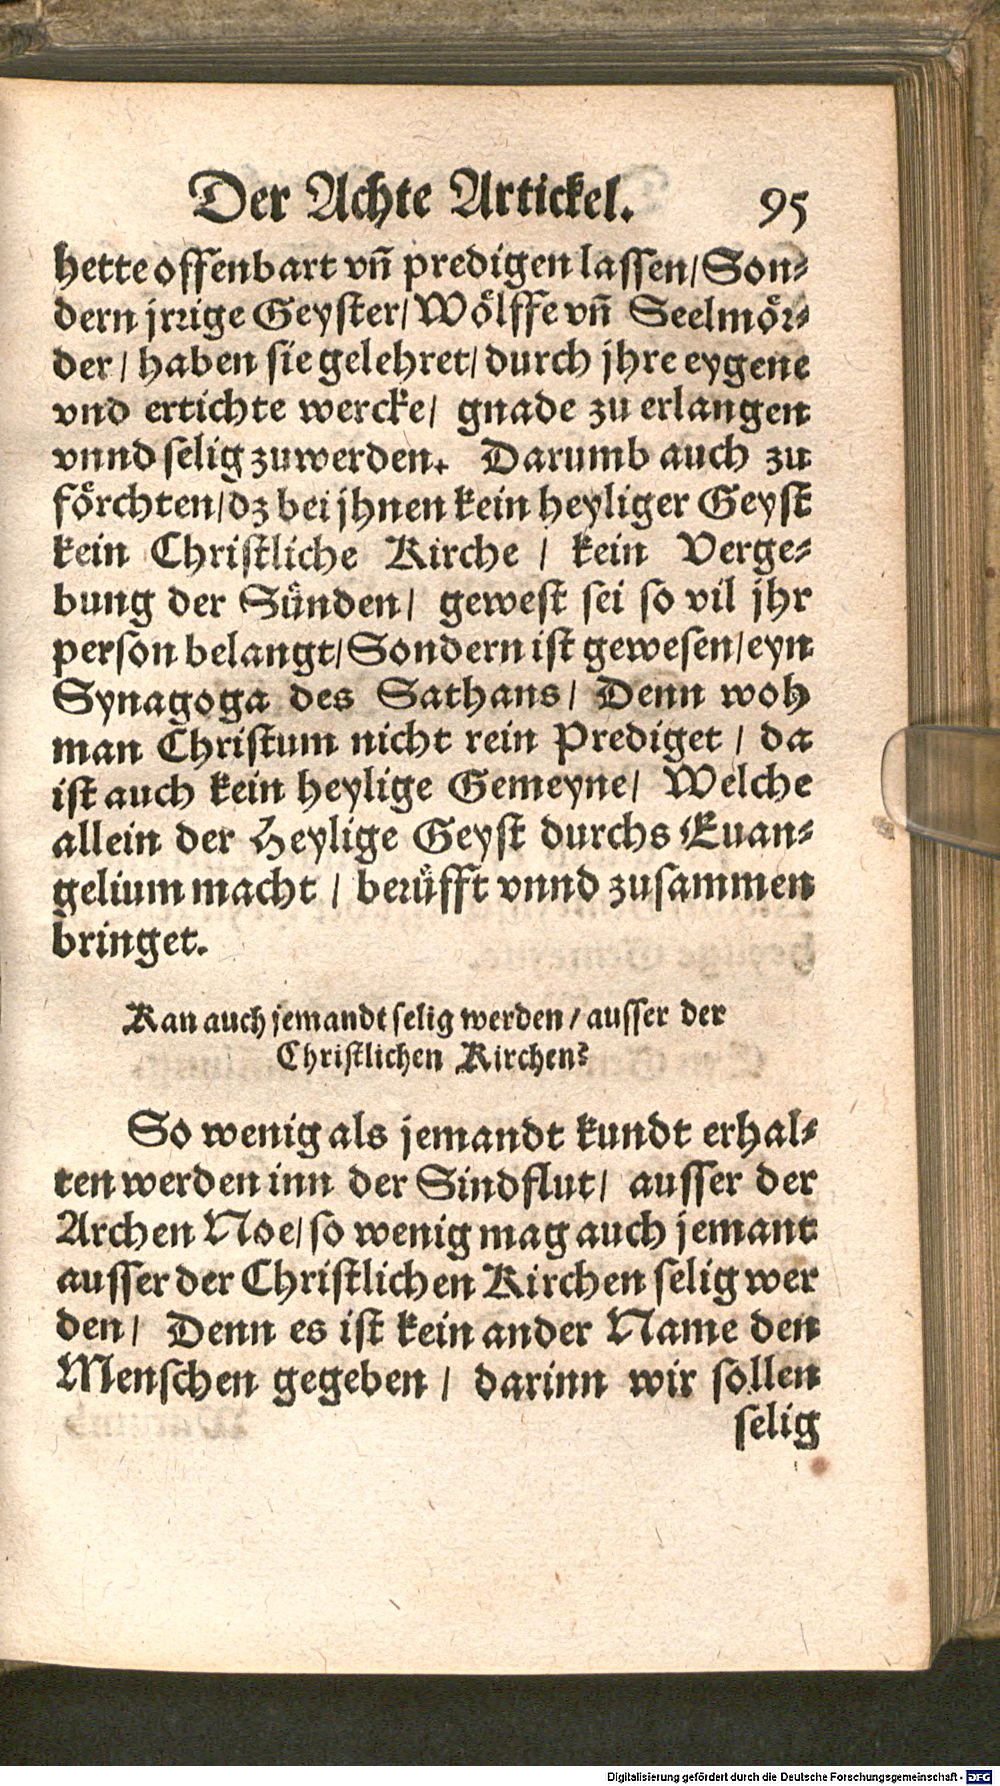 Der Achte Artickel. 95
hette offenbart vñ predigen lassen/ Son-
dern jrrige Geyster/ Wölffe vñ Seelmör-
der/ haben sie gelehret/ durch jhre eygene
vnd ertichte wercke/ gnade zu erlangen
vnnd selig zuwerden. Darumb auch zu
förchten/ dz bei jhnen kein heyliger Geyst
kein Christliche Kirche / kein Verge-
bung der Sünden/ gewest sei so vil jhr
person belangt/ Sondern ist gewesen/ eyn
Synagoga des Sathans/ Denn woh
man Christum nicht rein Prediget / da
ist auch kein heylige Gemeyne/ Welche
allein der Heylige Geyst durchs Euan-
gelium macht / berüfft vnnd zusammen
bringet.
Kan auch jemandt selig werden / ausser der
Christlichen Kirchen?
So wenig als jemandt kundt erhal-
ten werden inn der Sindflut/ ausser der
Archen Noe/ so wenig mag auch jemant
ausser der Christlichen Kirchen selig wer
den/ Denn es ist kein ander Name den
Menschen gegeben / darinn wir sollen
selig
Digitalisierung gefördert durch die Deutsche Forschungsgemeinschaft - DFG